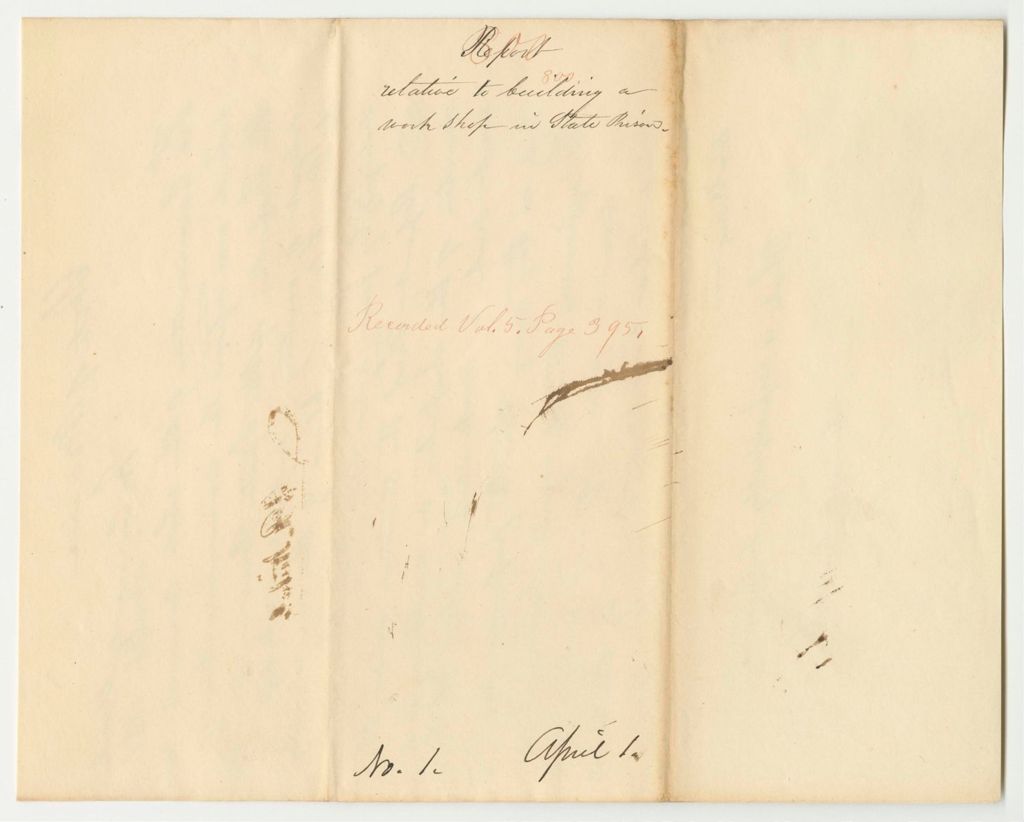 Report
relative to building a
work shop in State Prison.
Recorded Vol. 5. Page 395.
No. 1.
April 1.